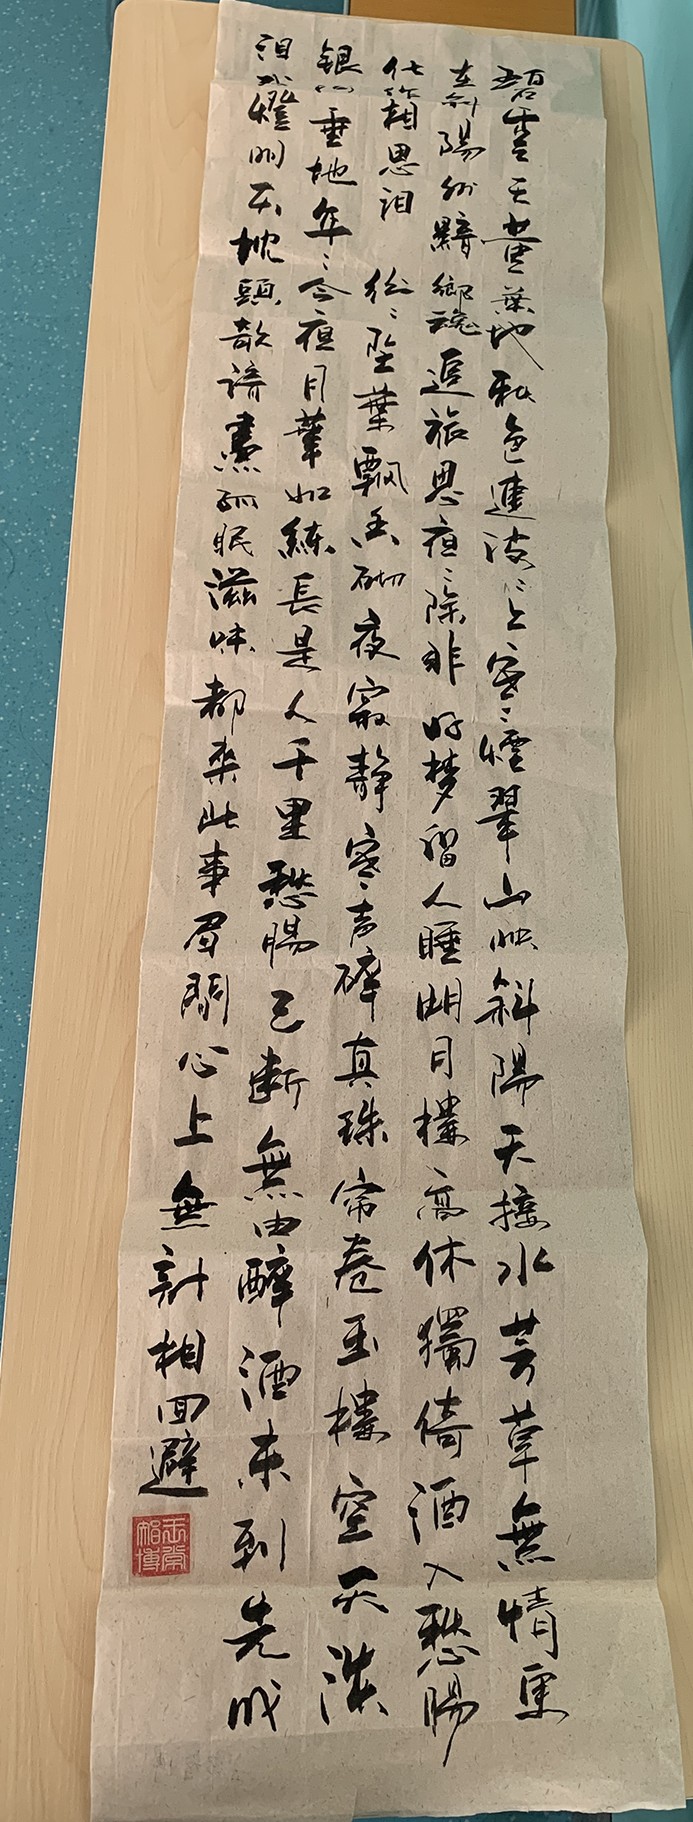 碧雲天黄葉地秋色連波〻上寒〻煙翠山映斜陽天接水芳草無情更
在斜陽外黯鄉魂追旅思夜〻除非好梦留人睡明月樓高休獨倚酒入愁腸
化作相思泪 紛〻墜葉飄香砌夜寂静寒声碎真珠帘卷玉樓空天淡
銀河垂地年〻今夜月華如練長是人千里愁腸已断無由醉酒未到先成
泪残燈明灭枕頭欹諳盡孤眠滋味都來此事眉間心上無計相回避